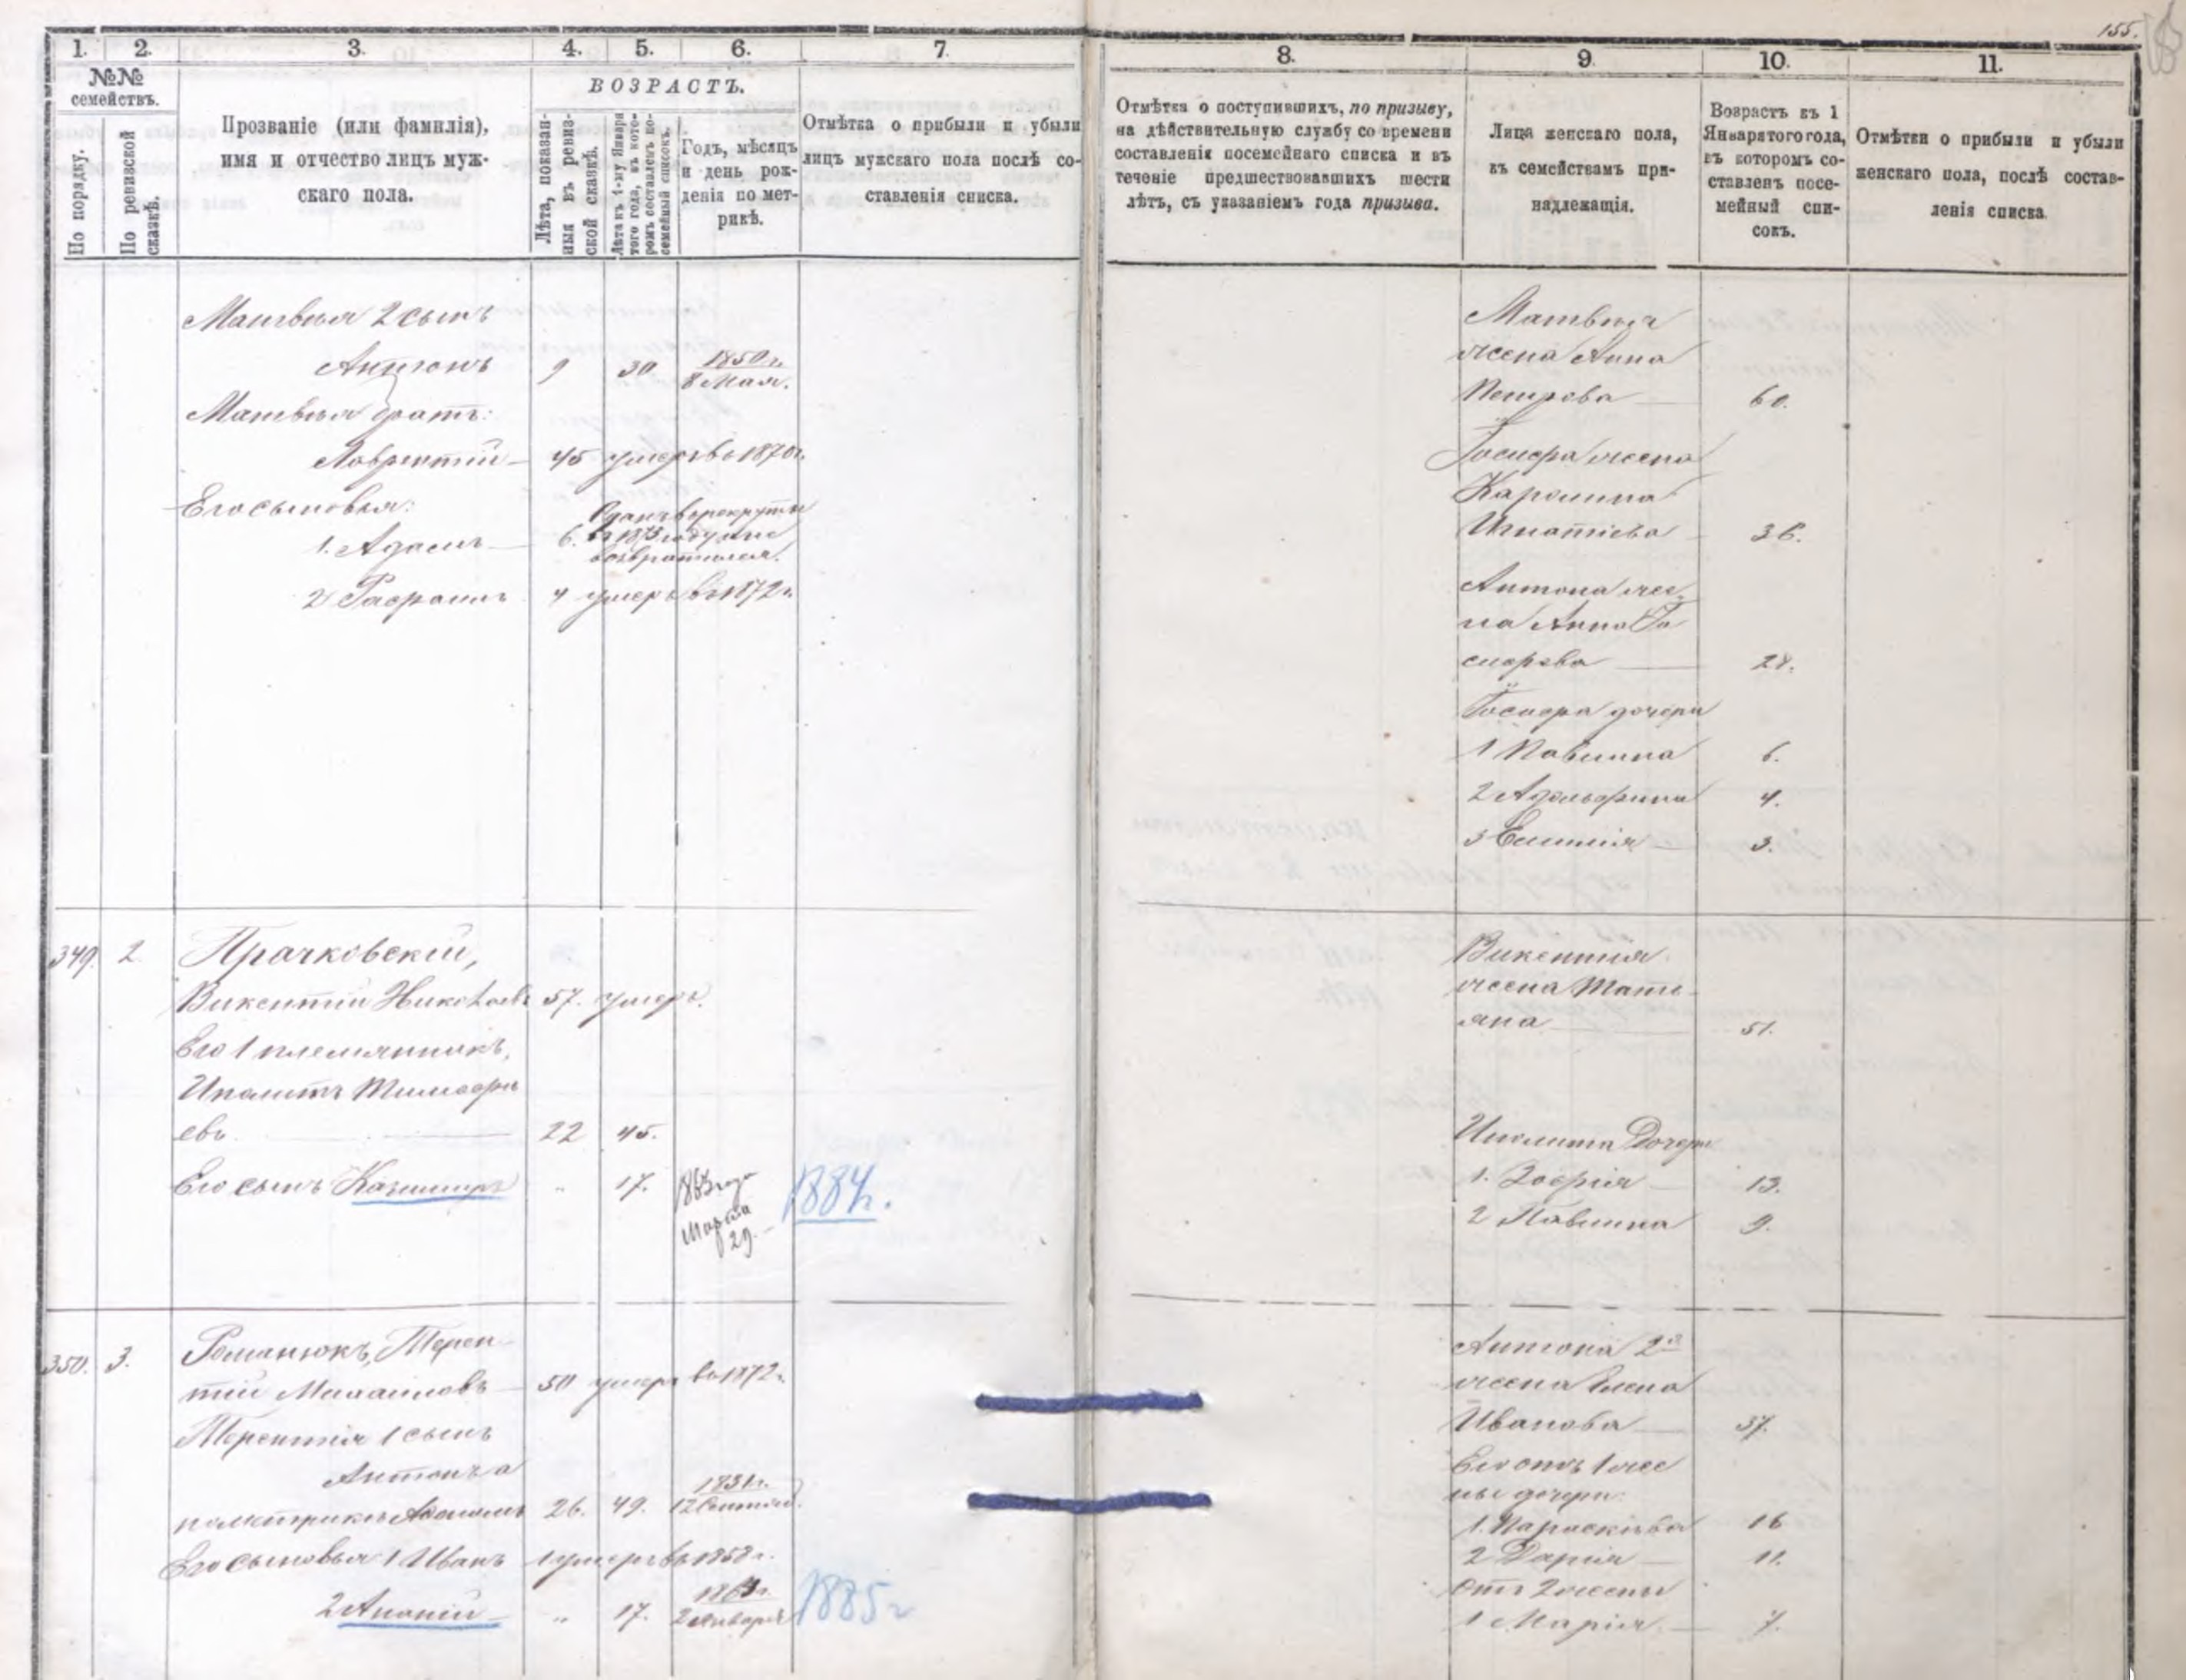 155.
1.
2.
3.
4.
5.
6.
7.
№№
семействъ.
По порядку.
По ревизской
сказкѣ.
Прозваніе (или фамилія),
имя и отчество лицъ муж-
скаго пола.
ВОЗРАСТЪ.
Лѣта, показан-
ныя въ ревиз-
ской сказкѣ.
Лѣта къ 1-му Января
того года, въ кото-
ромъ составленъ по-
семейный списокъ.
Годъ, мѣсяцъ
и день рож-
денія по мет-
рикѣ.
Отмѣтка о прибыли и убыли
лицъ мужскаго пола послѣ со-
ставленія списка.
Матвѣя 2 сынъ
Антонъ 9 30 1850 г.
8 Мая.
Матвѣя братъ:
Лаврентій 45 умеръ въ 1870 г.
Его сыновья:
1. Адамъ 6. Сданъ въ рекруты
въ 1873 году и не
возвратился.
2 Рафаилъ 4 умеръ въ 1872 г.
349. 2. Прачковскій,
Викентій Николаевъ 57. умеръ.
Его 1 племянникъ,
Иполитъ Тимофѣ
евъ 22 45.
Его сынъ Казимиръ „ 17. 1863 года
Марта
29. 1884 г.
350. 3. Романюкъ, Терен-
тій Михаиловъ 50 умеръ въ 1872 г.
Терентія 1 сынъ
Антонъ а
по метрикѣ 26. 49. 1831 г.
12 Сентяб.
Его сыновья 1 Иванъ 1 умеръ въ 1858 г.
2 Ананій „ 17. 1863 г.
2 Января 1885 г
8.
9.
10.
11.
Отмѣтка о поступившихъ, по призыву,
на дѣйствительную службу со времени
составленія посемейнаго списка и въ
теченіе предшествовавшихъ шести
лѣтъ, съ указаніемъ года призыва.
Лица женскаго пола,
къ семействамъ при-
надлежащія.
Возрастъ къ 1
Января того года,
въ которомъ со-
ставленъ посе-
мейный спи-
сокъ.
Отмѣтки о прибыли и убыли
женскаго пола, послѣ состав-
ленія списка.
Матвѣя
жена Анна
Петрова 60.
Іосифа жена
Каролина
Игнатіева 36.
Антона же-
на Анна Іо
сифова 28.
Іосифа дочери
1 Павлина 6.
2 Адольфина 4.
3 Емилія 3.
Викентія
жена Тать-
яна 51.
Иполита Дочери
1. Зофія 13.
2 Павлина 9.
Антона 2я
жена Елена
Иванова 37.
Его отъ 1 же
ны дочери:
1. Параскѣва 16
2 Дарія 11.
отъ 2 жены
1 Марія 7.